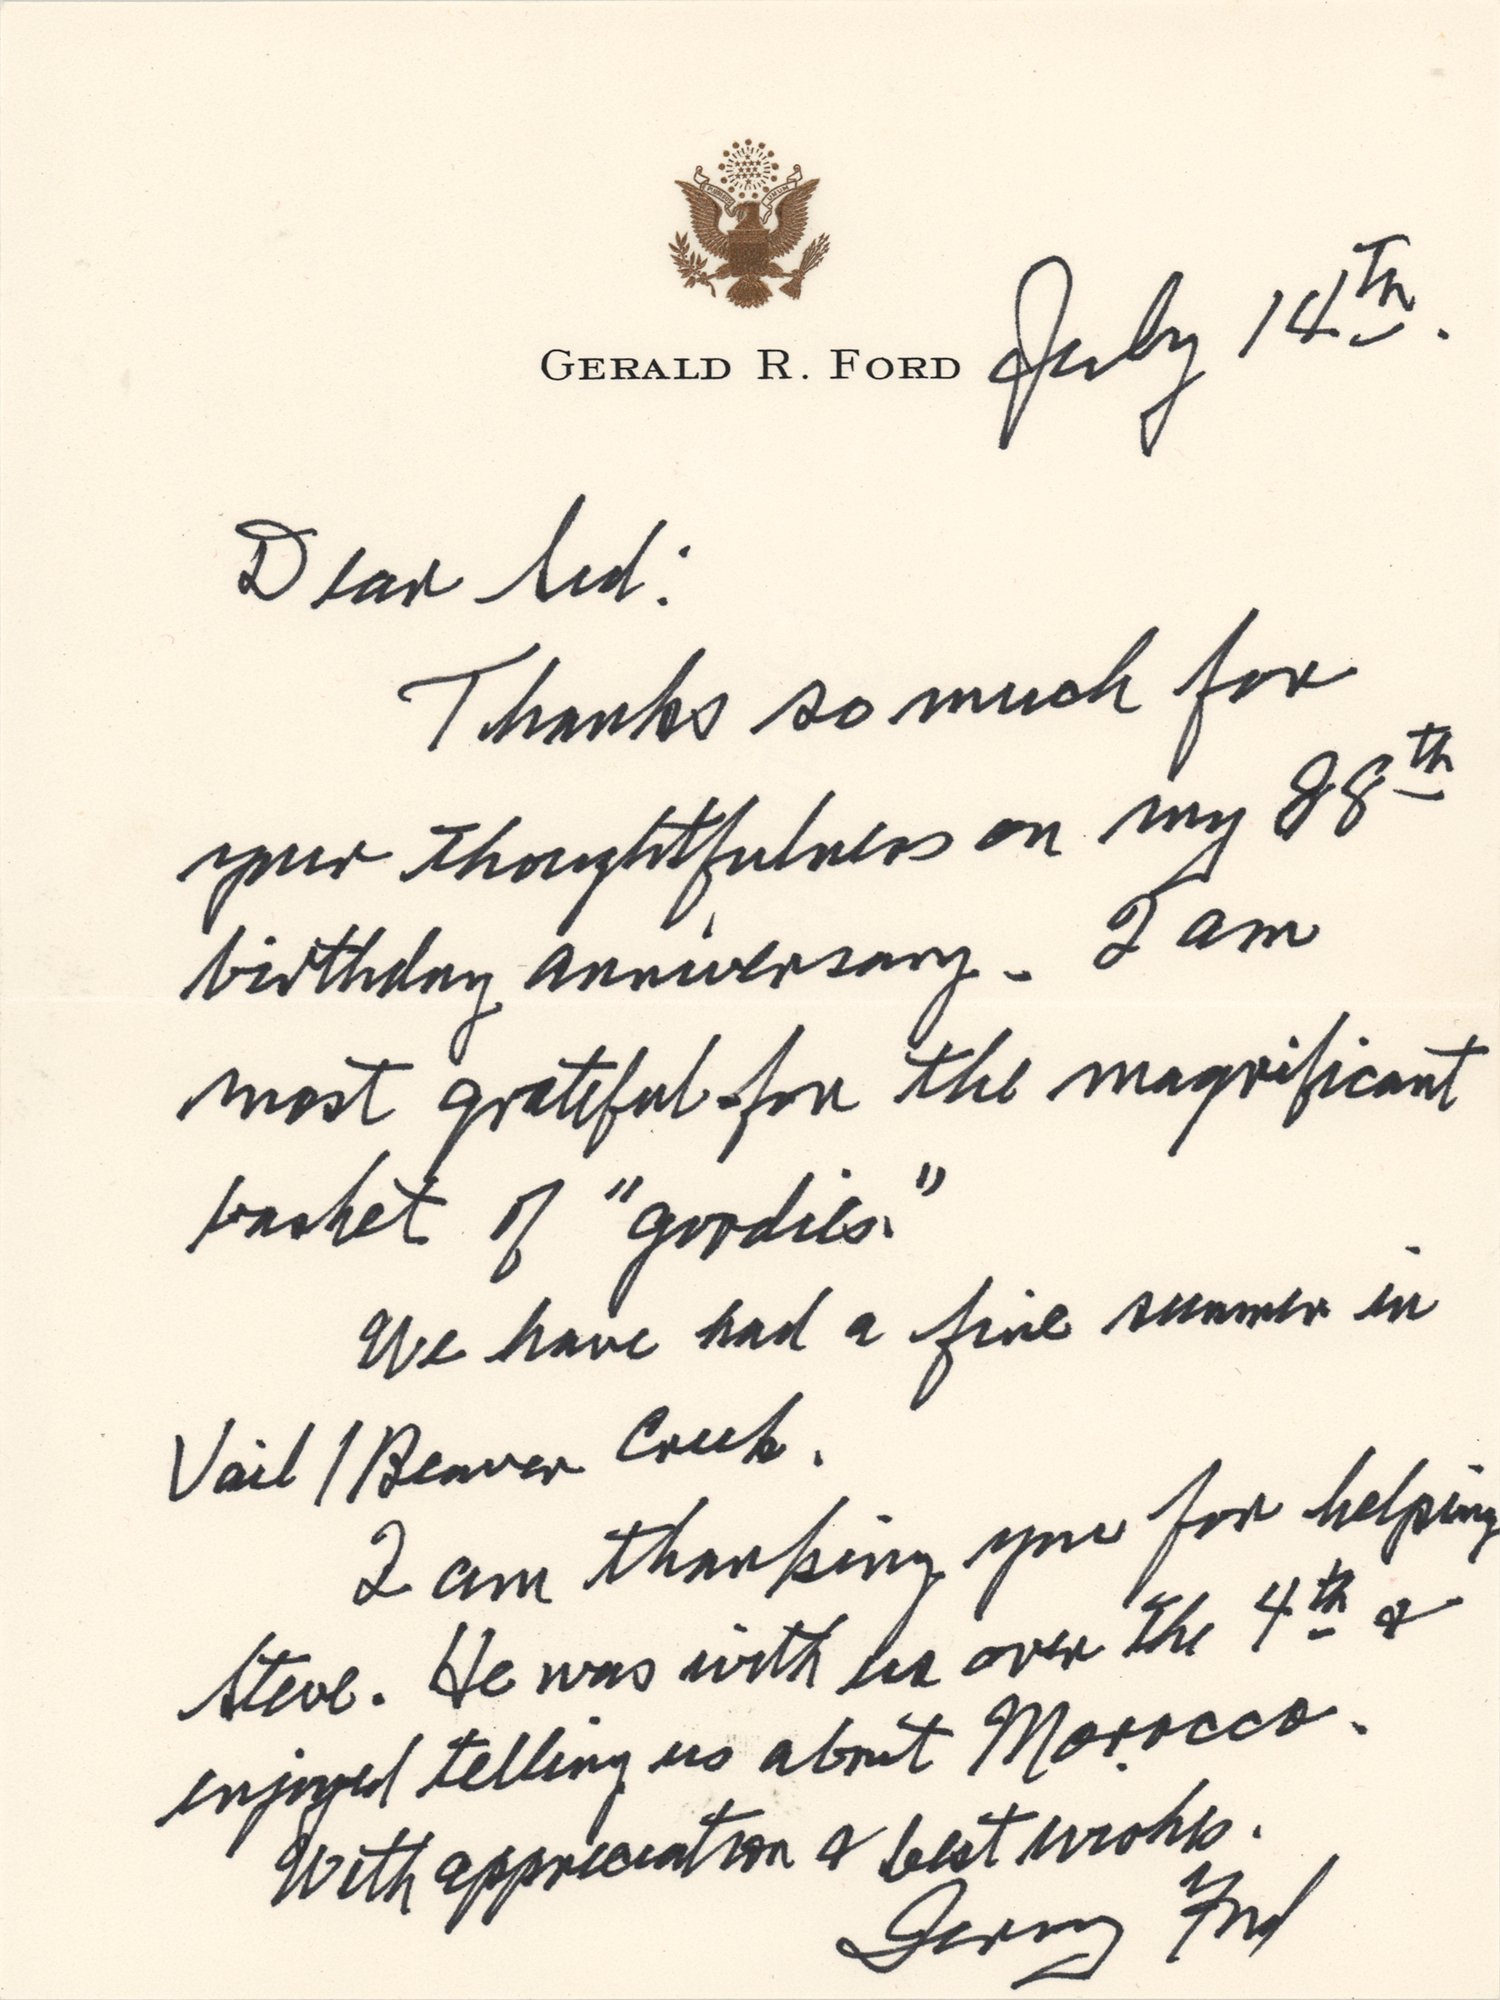 GERALD R. FORD
July 14th.
Dear Sid:
Thanks so much for
your thoughtfulness on my 88th
birthday anniversary. I am
most grateful for the magnificant
basket of "goodies."
We have had a fine summer in
Vail / Beaver Creek.
I am thanking you for helping
Steve. He was with us over the 4th &
enjoyed telling us about Morocco.
With appreciation & best wishes.
Jerry Ford